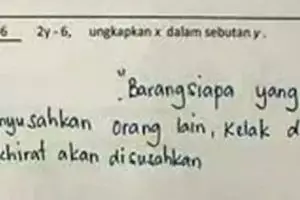 6 2y - 6, ungkapkan x dalam sebutan y.
"Barangsiapa yang
nyusahkan orang lain, kelak d
chirat akan disusahkan